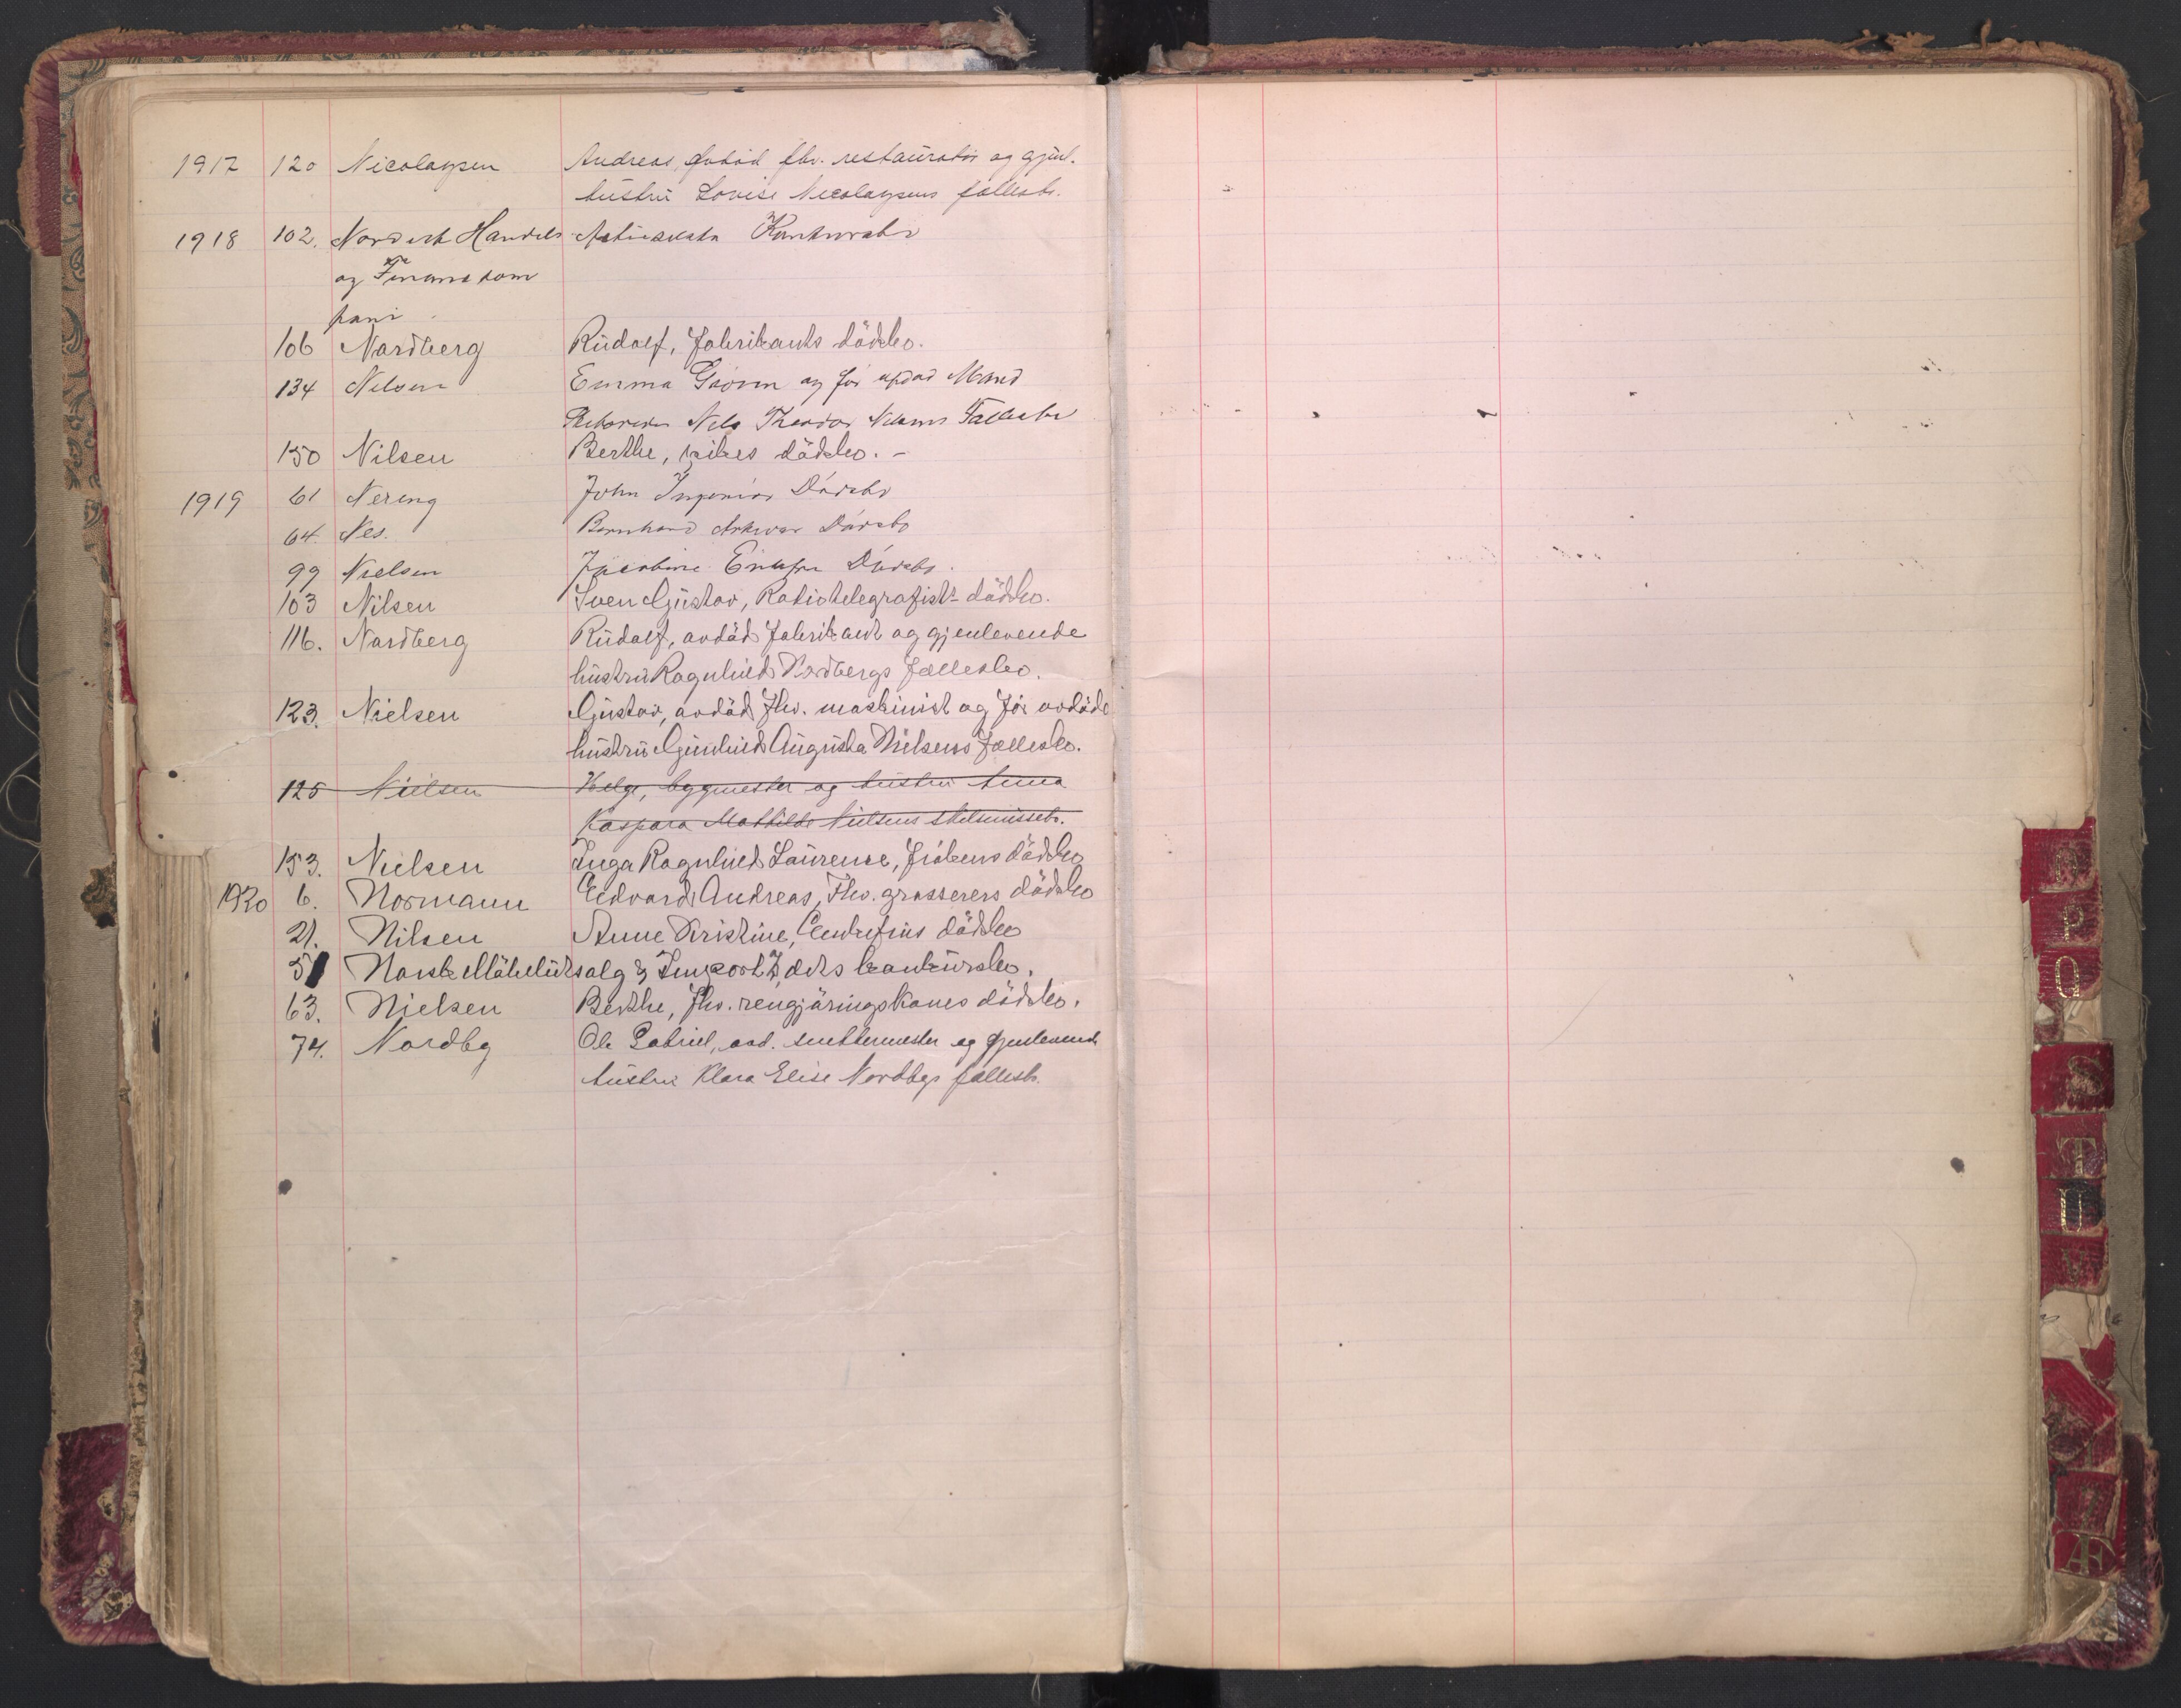 1917 120 Nicolaysen Andreas, avdød fhv. restauratør og gjenl.
hustru Lovise Nicolaysens fællesbo.
1918 102. Nordisk Handels Aktieselskap Konkursbo
og Finanskom
pani
106 Nordberg Rudolf, fabrikants dödsbo.
134 Nilsen Emma Enke og før avdød Mand
Nils Theodor Nilsens Fællesbo
150 Nilsen Berthe, pikes dödsbo. -
1919 61 Nering John Ingeniør Dødsbo
64. Nes. Bernhard Dødsbo
99 Nielsen Jacobine Enkefru Dødsbo.
103 Nilsen Sven Gustav, Radiotelegrafists dödsbo.
116. Nordberg Rudolf, avdöd fabrikant og gjenlevende
hustru Ragnhild Nordbergs fællesbo.
123. Nielsen Gustav, avdöd fhv. maskinist og før avdöde
hustru Gunhild Augusta Nielsens fællesbo.
125 Nielsen Helge, bygmester og hustru Anna
Kaspara Mathilde Nielsens skilsmissebo.
153. Nielsen Inga Ragnhild Laurense, frökens dödsbo
1920 6. Normann Edvard Andreas, Fhv. grosserers dödsbo
21. Nilsen Anne Kristine, Enkefrus dödsbo
51 Norsk Möbeludsalg & Import A/S, dets konkursbo.
63. Nielsen Berthe, fhv. rengjöringskones dödsbo.
74. Nordby Ole Gabriel, avd. snekkermester og gjenlevende
hustru Klara Elise Nordbys fællesbo.
N
P
Q
S
T
U
W
Z
Æ